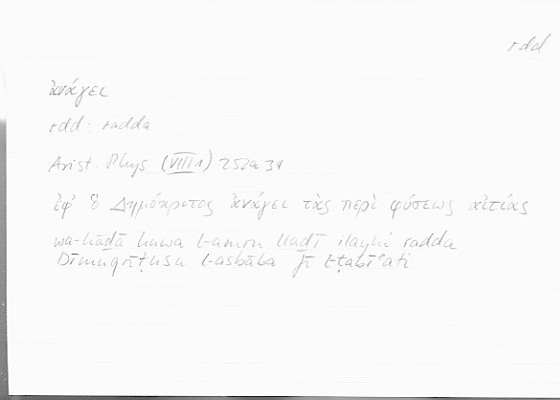 rdd
ἀνάγει
rdd: radda
Arist. Phys (VIII 1) 252a 34
ἐφ' ὃ Δημόκριτος ἀνάγει τὰς περὶ φύσεως αἰτίας
wa-hāḏā huwa l-amru llaḏī ilayhi radda
Dīmuqrāṭusu l-asbāba fī ṭ-ṭabīʿati